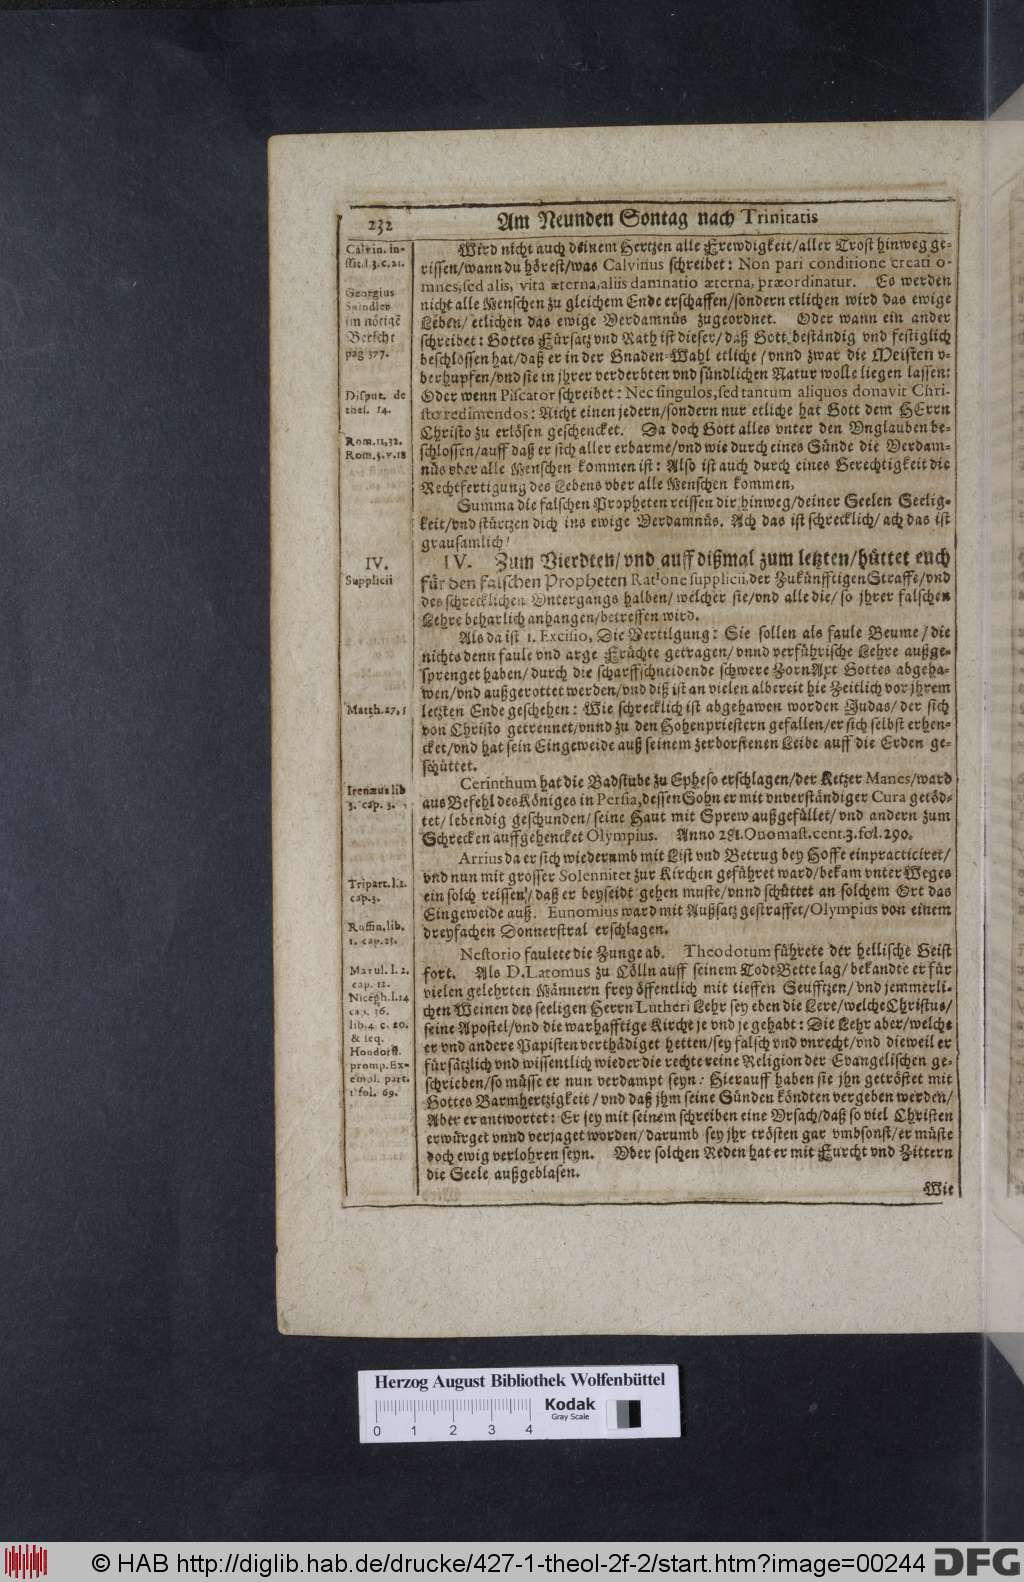 232
Am Neunden Sontag nach Trinitatis
Calvin. in-
stit.l.3.c.21.
Georgius
Spindler
im nötigē
Bericht
pag 377.
Disput. de
thes. 14.
Rom.11,32.
Rom.5.v.18
IV.
Supplicii
Matth.27,5
Irenæus lib
3. cap. 3.
Tripart.l.1.
cap.3.
Ruffin.lib.
1. cap.25.
Marul. l. 2.
cap. 12.
Niceph.l.14
cap. 36.
lib.4. c. 20.
& seq.
Hondorff.
promp.Ex-
empl. part.
1 fol. 69.
Wird nicht auch deinem Hertzen alle Frewdigkeit/aller Trost hinweg ge-
rissen/wann du hörest/was Calvinus schreibet: Non pari conditione creati o-
mnes,sed aliis, vita æterna,aliis damnatio æterna, præordinatur. Es werden
nicht alle Menschen zu gleichem Ende erschaffen/sondern etlichen wird das ewige
Leben/etlichen das ewige Verdamnüs zugeordnet. Oder wann ein ander
schreibet: Gottes Fürsatz vnd Rath ist dieser/daß Gott beständig vnd festiglich
beschlossen hat/daß er in der Gnaden-Wahl etliche/vnnd zwar die Meisten v-
berhupfen/vnd sie in jhrer verderbten vnd sündlichen Natur wolle liegen lassen:
Oder wenn Piscator schreibet: Nec singulos,sed tantum aliquos donavit Chri-
sto redimendos: Nicht einen jedern/sondern nur etliche hat Gott dem HErrn
Christo zu erlösen geschencket. Da doch Gott alles vnter den Vnglauben be-
schlossen/auff daß er sich aller erbarme/vnd wie durch eines Sünde die Verdam-
nüs vber alle Menschen kommen ist: Also ist auch durch eines Gerechtigkeit die
Rechtfertigung des Lebens vber alle Menschen kommen,
Summa die falschen Propheten reissen dir hinweg/deiner Seelen Seelig-
keit/vnd stürtzen dich ins ewige Verdamnüs. Ach das ist schrecklich/ach das ist
grausamlich!
IV. Zum Vierdten/vnd auff dißmal zum letzten/hüttet euch
für den falschen Propheten Ratione supplicii,der Zukünfftigen Straffe/vnd
des schrecklichen Vntergangs halben/welcher sie/vnd alle die/so jhrer falschen
Lehre beharlich anhangen/betreffen wird.
Als da ist 1. Excisio, Die Vertilgung: Sie sollen als faule Beume/die
nichts denn faule vnd arge Früchte getragen/vnnd verführische Lehre außge-
sprenget haben/durch die scharffschneidende schwere ZornAxt Gottes abgeha-
wen/vnd außgerottet werden/vnd diß ist an vielen albereit hie Zeitlich vor jhrem
letzten Ende geschehen: Wie schrecklich ist abgehawen worden Judas/der sich
von Christo getrennet/vnnd zu den Hohenpriestern gefallen/er sich selbst erhen-
cket/vnd hat sein Eingeweide auß seinem zerborstenen Leibe auff die Erden ge-
schüttet.
Cerinthum hat die Badstube zu Epheso erschlagen/der Ketzer Manes/ward
aus Befehl des Königes in Persia,dessen Sohn er mit vnverständiger Cura getöd-
tet/lebendig geschunden/seine Haut mit Sprew außgefüllet/vnd andern zum
Schrecken auffgehencket Olympius. Anno 281.Onomast.cent.3.fol.290.
Arrius da er sich wiederumb mit List vnd Betrug bey Hoffe einpracticiret/
vnd nun mit grosser Solennitet zur Kirchen geführet ward/bekam vnter Weges
ein solch reissen/daß er beyseidt gehen muste/vnnd schüttet an solchem Ort das
Eingeweide auß. Eunomius ward mit Außsatz gestraffet/Olympius von einem
dreyfachen Donnerstral erschlagen.
Nestorio faulete die Zunge ab. Theodotum führete der hellische Geist
fort. Als D.Latomus zu Cölln auff seinem TodtBette lag/bekandte er für
vielen gelehrten Männern frey öffentlich mit tieffen Seufftzen/vnd jemmerli-
chen Weinen des seeligen Herrn Lutheri Lehr sey eben die Lere/welche Christus/
seine Apostel/vnd die warhafftige Kirche je vnd je gehabt: Die Lehr aber/welche
er vnd andere Papisten verthädiget hetten/sey falsch vnd vnrecht/vnd dieweil er
fürsätzlich vnd wissentlich wieder die rechte reine Religion der Evangelischen ge-
schrieben/so müsse er nun verdampt seyn: Hierauff haben sie jhn getröstet mit
Gottes Barmhertzigkeit/vnd daß jhm seine Sünden köndten vergeben werden/
Aber er antwortet: Er sey mit seinem schreiben eine Vrsach/daß so viel Christen
erwürget vnnd verjaget worden/darumb sey jhr trösten gar vmbsonst/er müste
doch ewig verlohren seyn. Vber solchen Reden hat er mit Furcht vnd Zittern
die Seele außgeblasen.
Wie
Herzog August Bibliothek Wolfenbüttel
Kodak
Gray Scale
0 1 2 3 4
© HAB http://diglib.hab.de/drucke/427-1-theol-2f-2/start.htm?image=00244
DFG